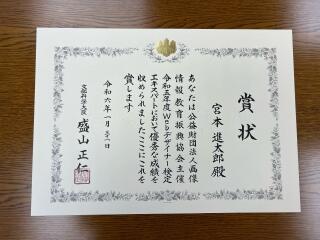 賞状
宮本 進太郎 殿
あなたは公益財団法人画像
情報教育振興協会主催
令和五年度Webデザイナー検定
エキスパートにおいて優秀な成績を
収められましたここにこれを
賞します
令和六年一月三十一日
文部科学大臣 盛山 正仁